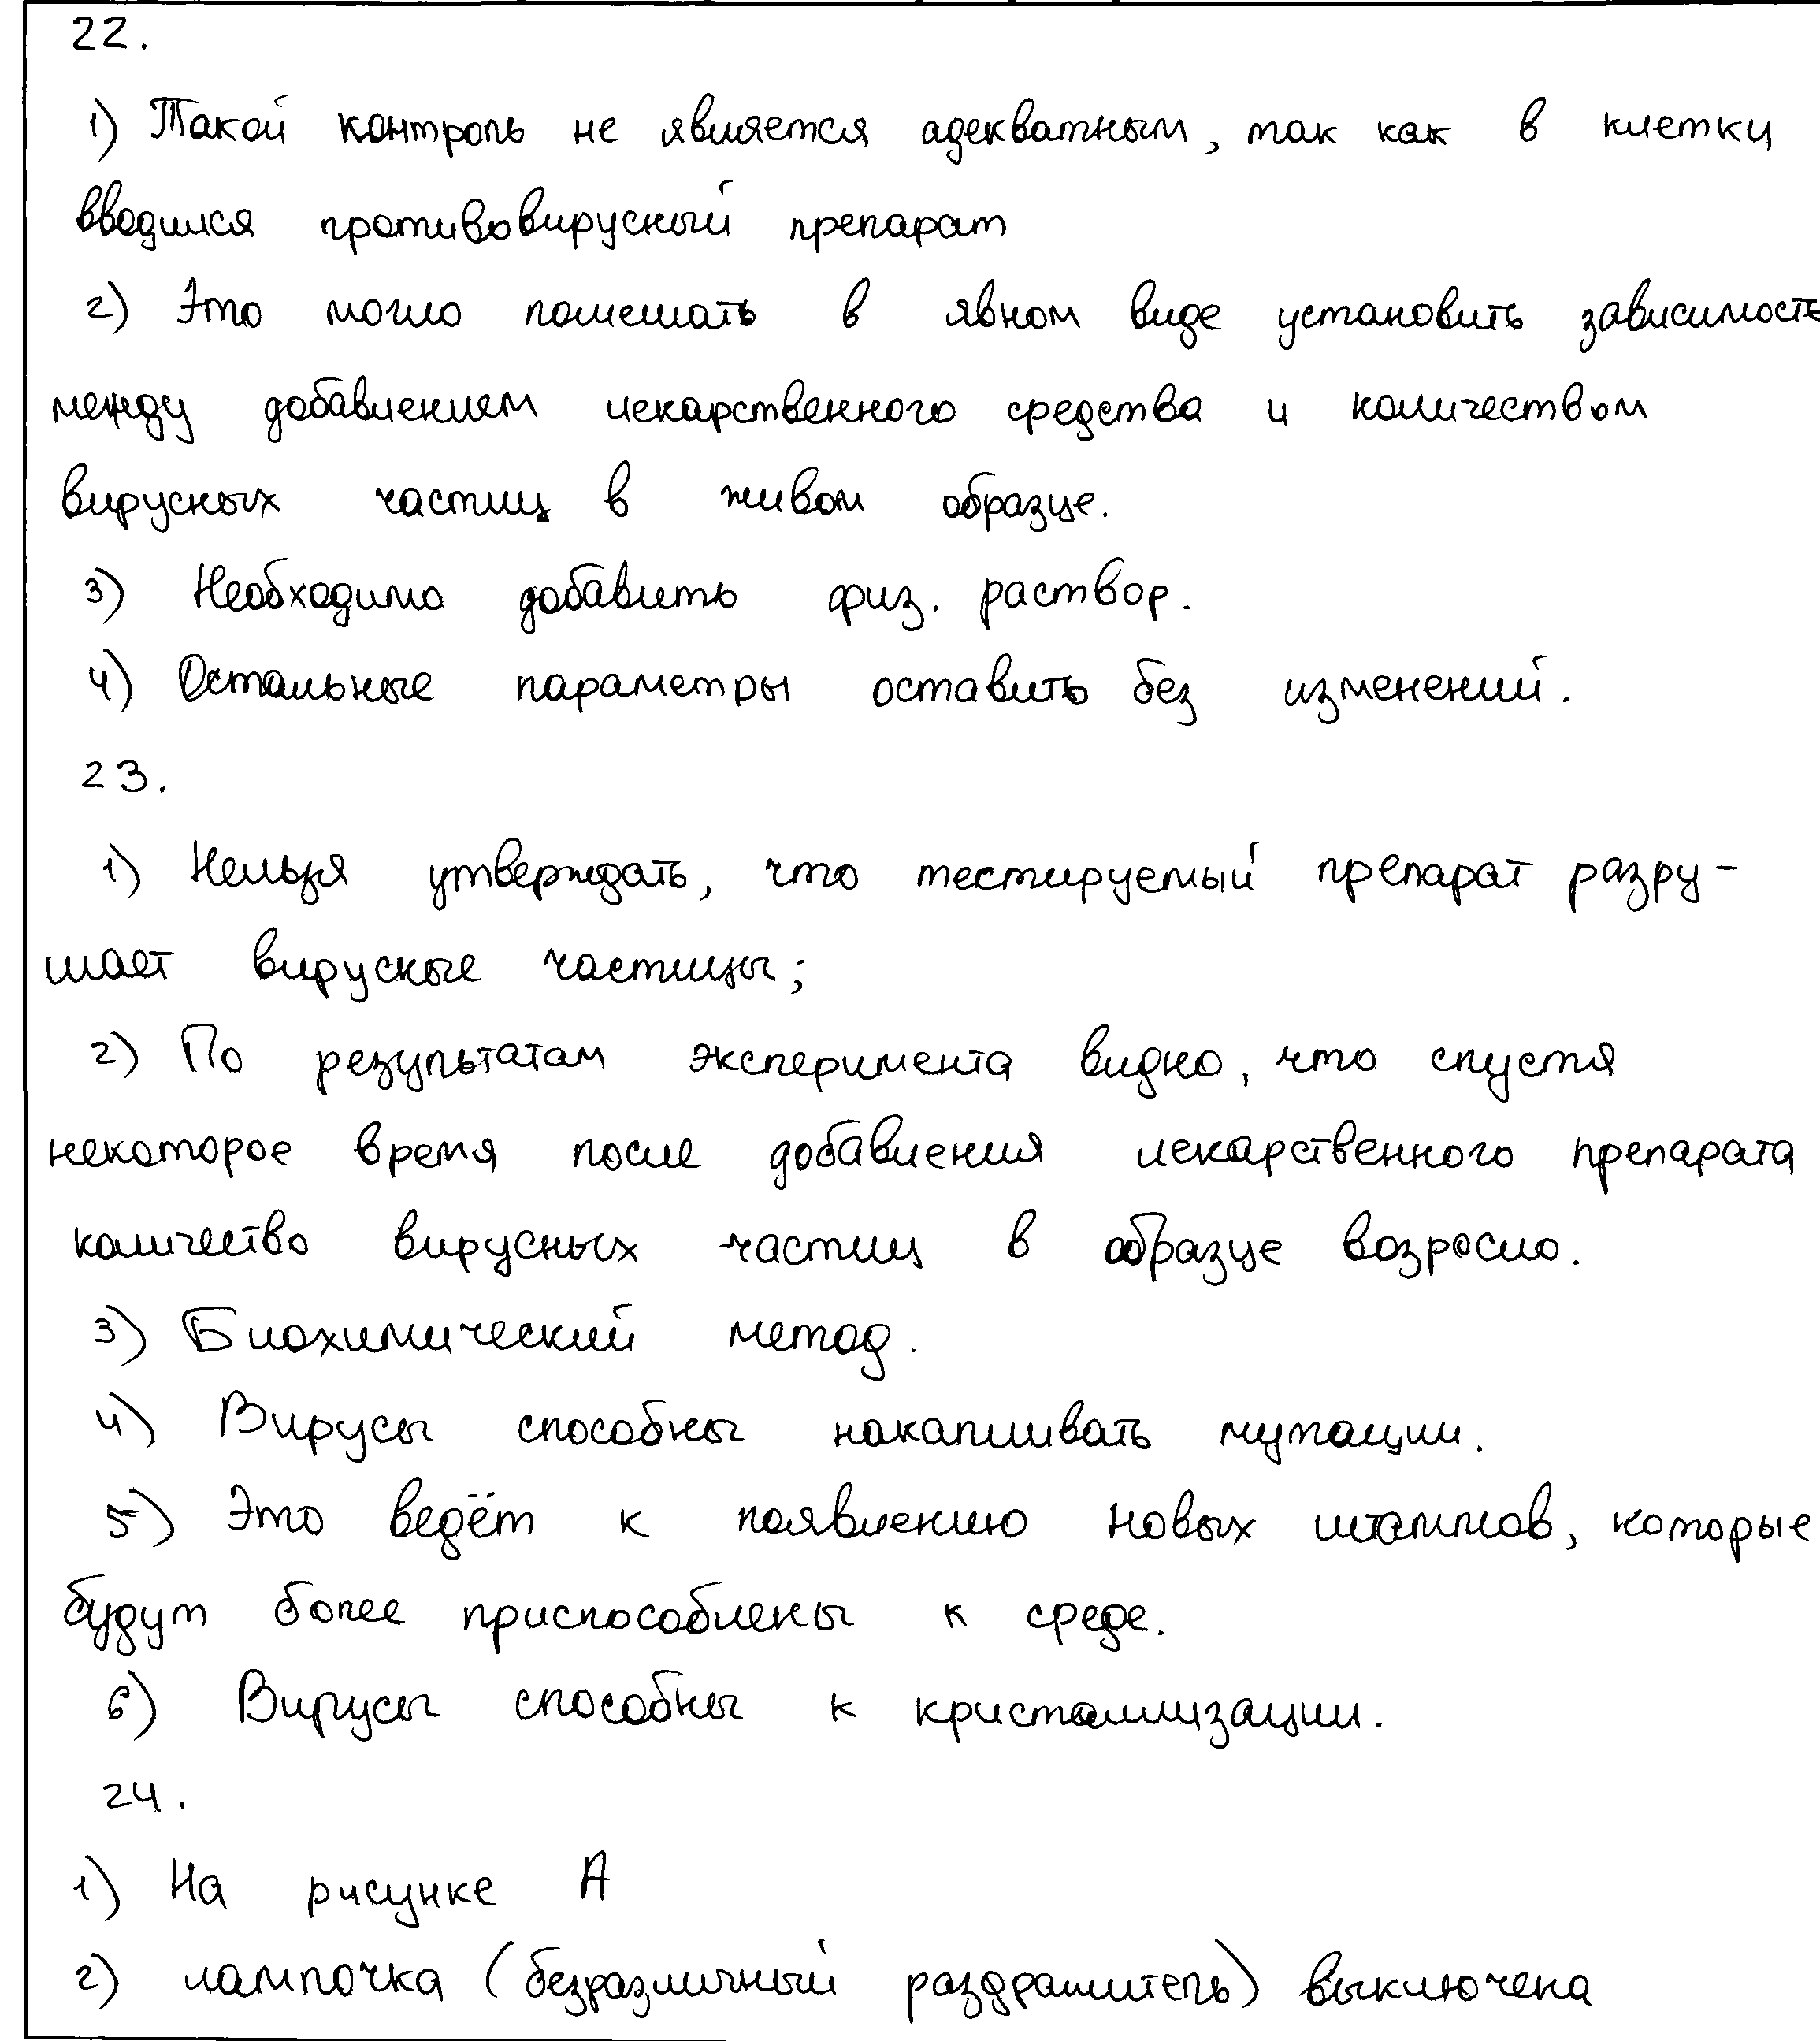 22.
1) Такой контроль не является адекватным, так как в клетки
вводился противовирусный препарат
2) Это могло помешать в явном виде установить зависимость
между добавлением лекарственного средства и количеством
вирусных частиц в живом образце.
3) Необходимо добавить физ. раствор.
4) Остальные параметры оставить без изменений.
23.
1) Нельзя утверждать, что тестируемый препарат разру-
шает вирусные частицы;
2) По результатам эксперимента видно, что спустя
некоторое время после добавления лекарственного препарата
количество вирусных частиц в образце возросло.
3) Биохимический метод.
4) Вирусы способны накапливать мутации.
5) Это ведёт к появлению новых штаммов, которые
будут более приспособлены к среде.
6) Вирусы способны к кристаллизации.
24.
1) На рисунке А
2) лампочка (безразличный раздражитель) выключена